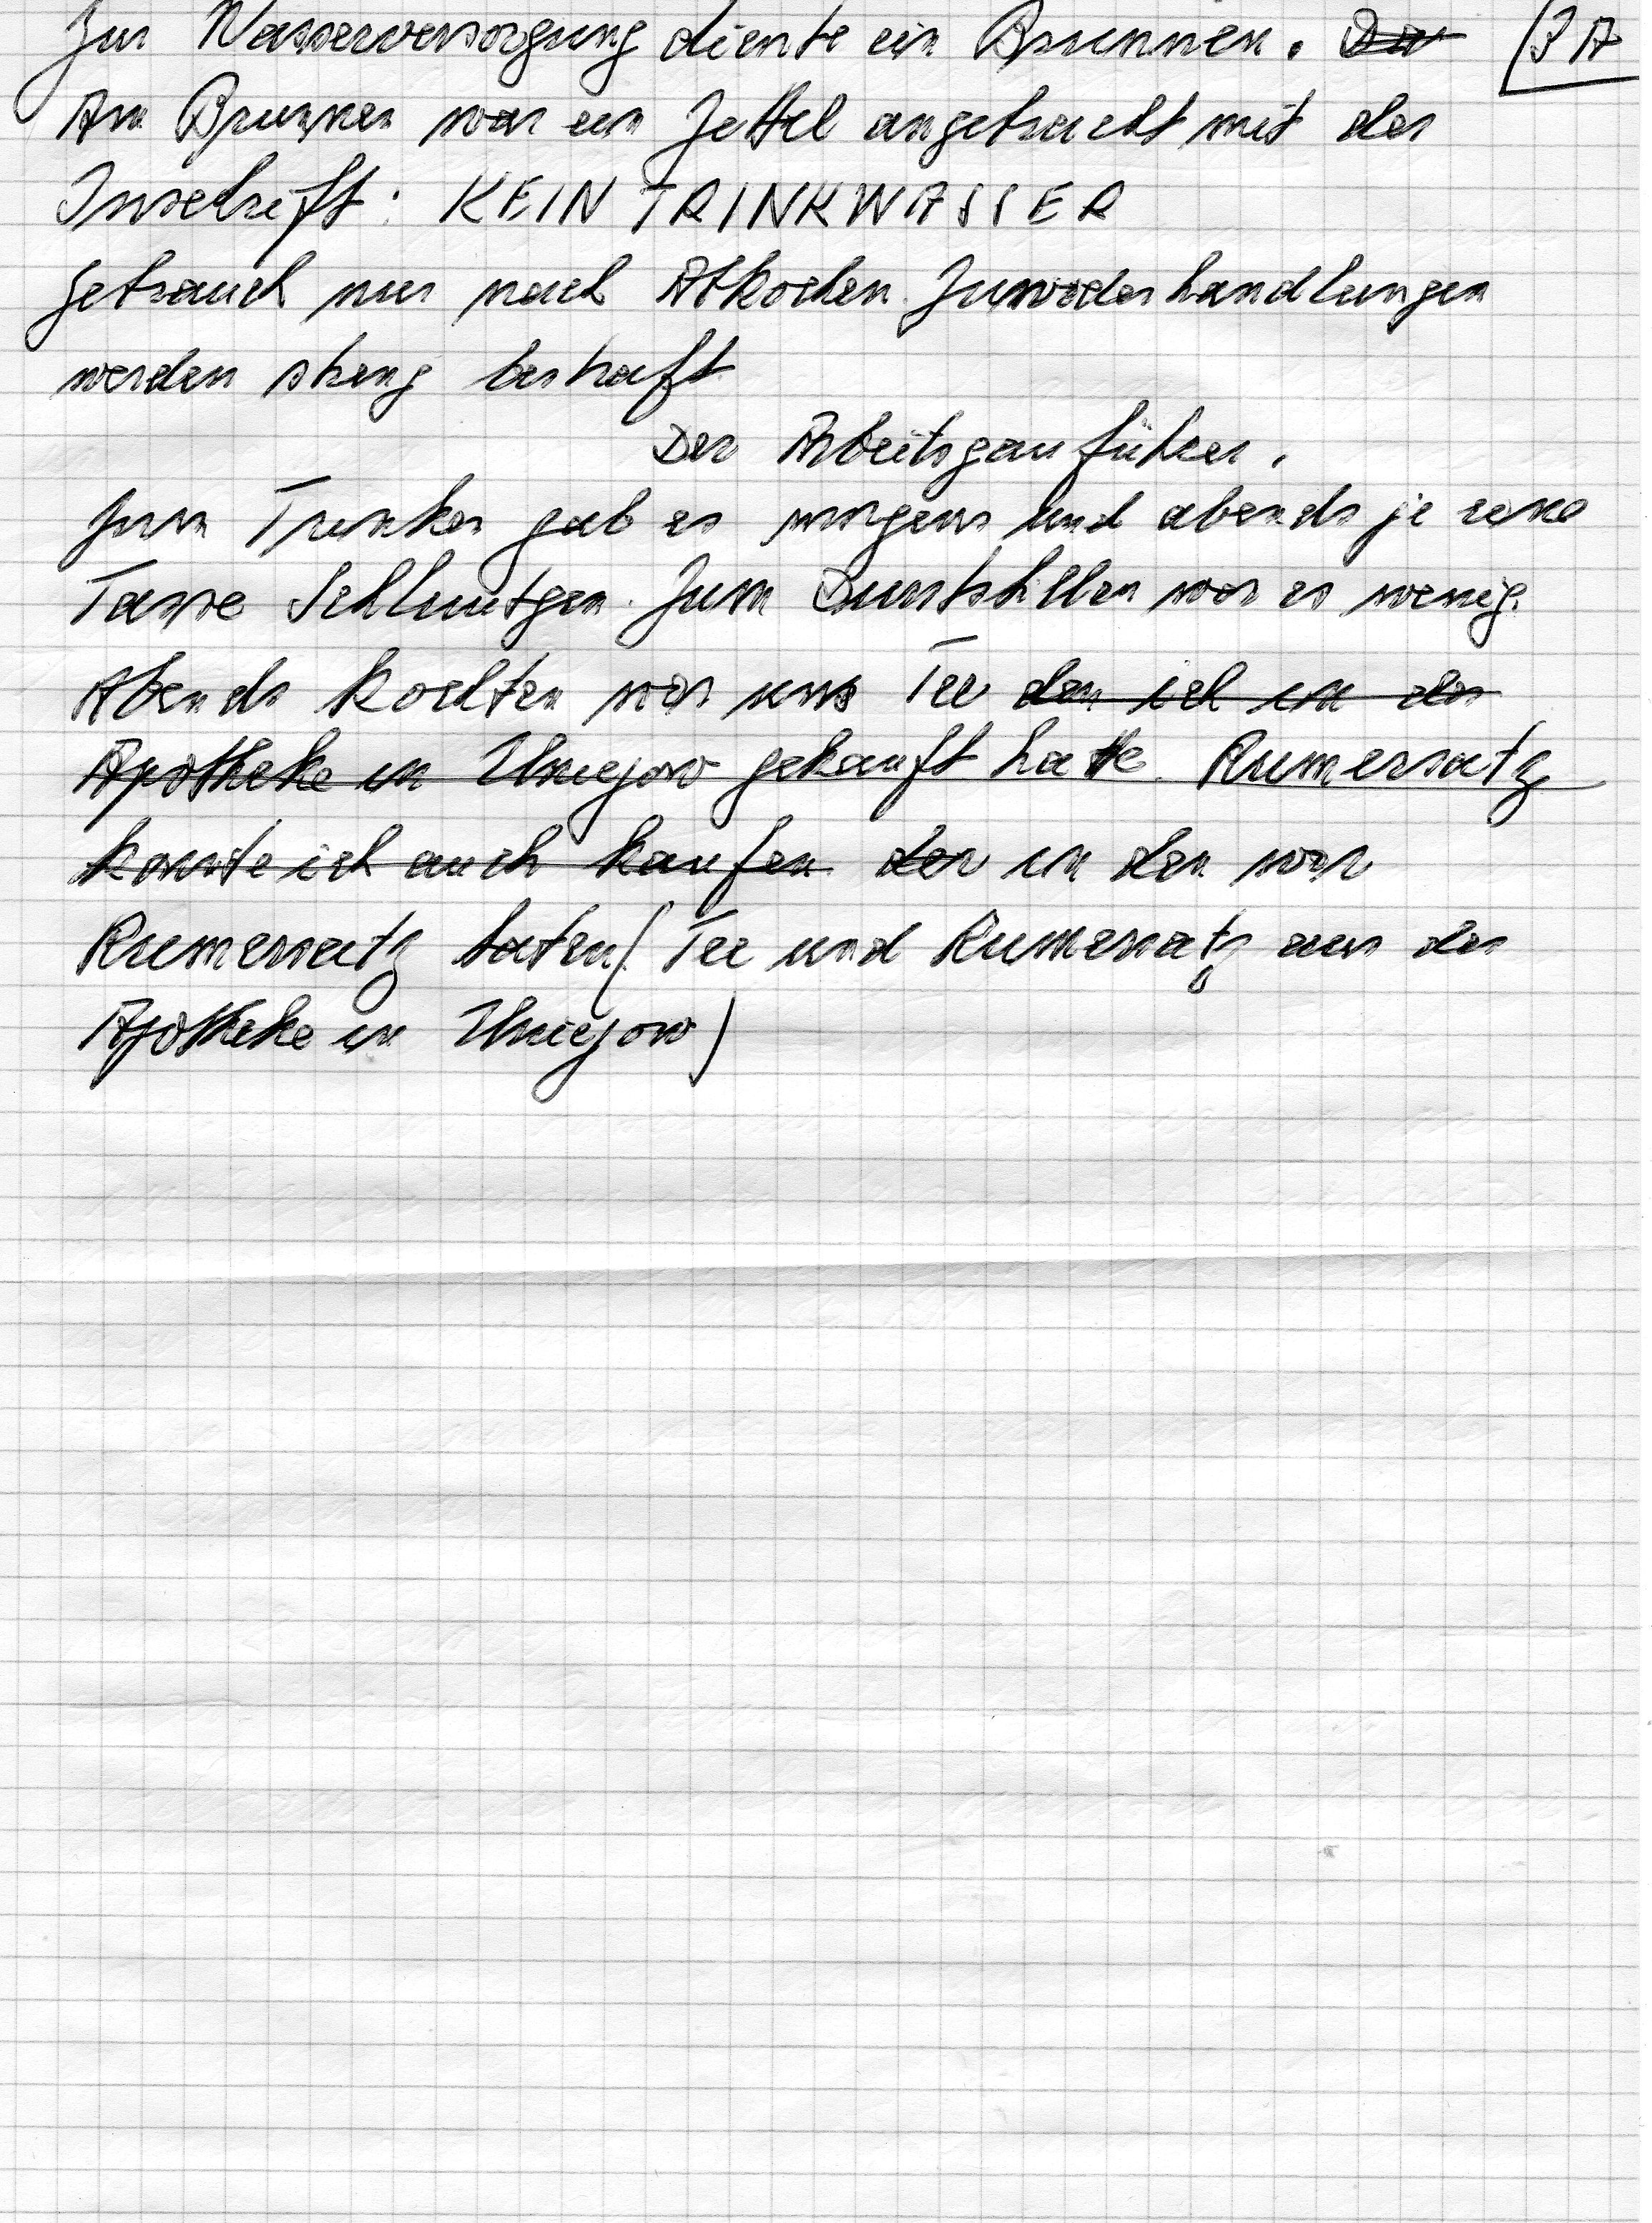 Zur Wasserversorgung diente ein Brunnen. Der 3A
Am Brunnen war ein Zettel angebracht mit der
Inschrift: KEIN TRINKWASSER
Gebrauch nur nach Abkochen. Zuwiderhandlungen
werden streng bestraft
Der Arbeitsgauführer.
Zum Trinken gab es morgens und abends je eine
Tasse Zum Durststillen war es wenig.
Abends kochten wir uns Tee den ich in der
Apotheke in Uniejow gekauft hatte. Rumersatz
konnte ich auch kaufen der in den wir
Rumersatz taten (Tee und Rumersatz aus der
Apotheke in Uniejow)